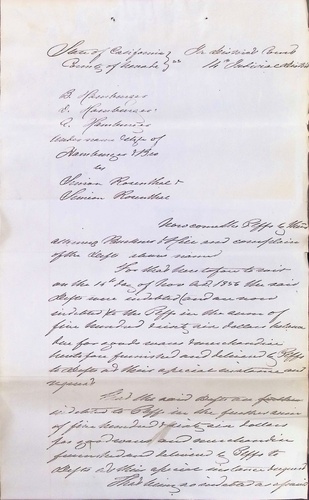 State of California } In District Court
County of Nevada } ss 14th Judicial District
B. Hamburger
D. Hamburger
Hamburger
under name & style of
Hamburger & Bro
vs
Simon Rosenthal &
Simeon Rosenthal
Now comes the Plffs by their
attorneys Buckner & and complain
of the Defts above named
For that heretofore to wit
on the 14th day of Nov A.D. 1856 the said
Defts were indebted (and are now
indebted) to the Plffs in the sum of
five hundred sixty six dollars balance
due for goods wares & merchandise
heretofore furnished and delivered by Plffs
to Defts at their special instance and
request
And the said Defts are further
indebted to Plffs in the further sum
of five hundred & sixty six dollars
for goods wares and merchandise
furnished and delivered by Plffs to
Defts at their special instance & request
That being so indebted as aforesaid